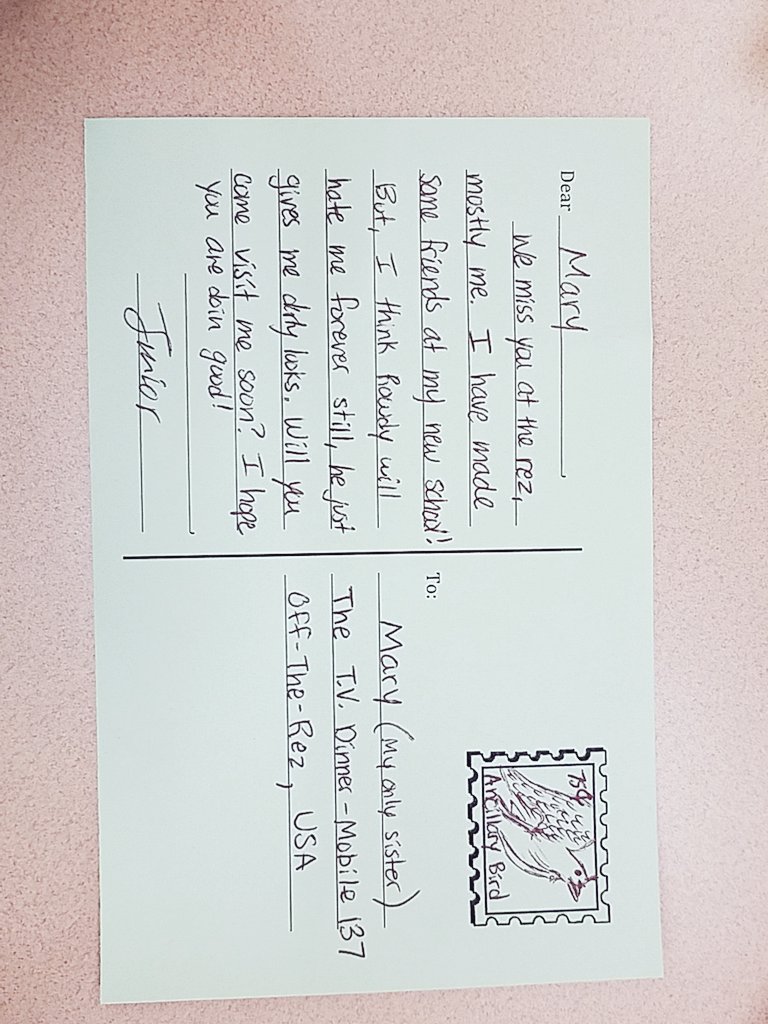 Dear Mary,
We miss you at the rez,
mostly me. I have made
some friends at my new school!
But, I think Rowdy will
hate me forever still, he just
gives me dirty looks. Will you
come visit me soon? I hope
you are doin good!
Junior
To:
Mary (My only sister)
The T.V. Dinner-Mobile 137
Off-The-Rez, USA
75¢
Ancillary Bird